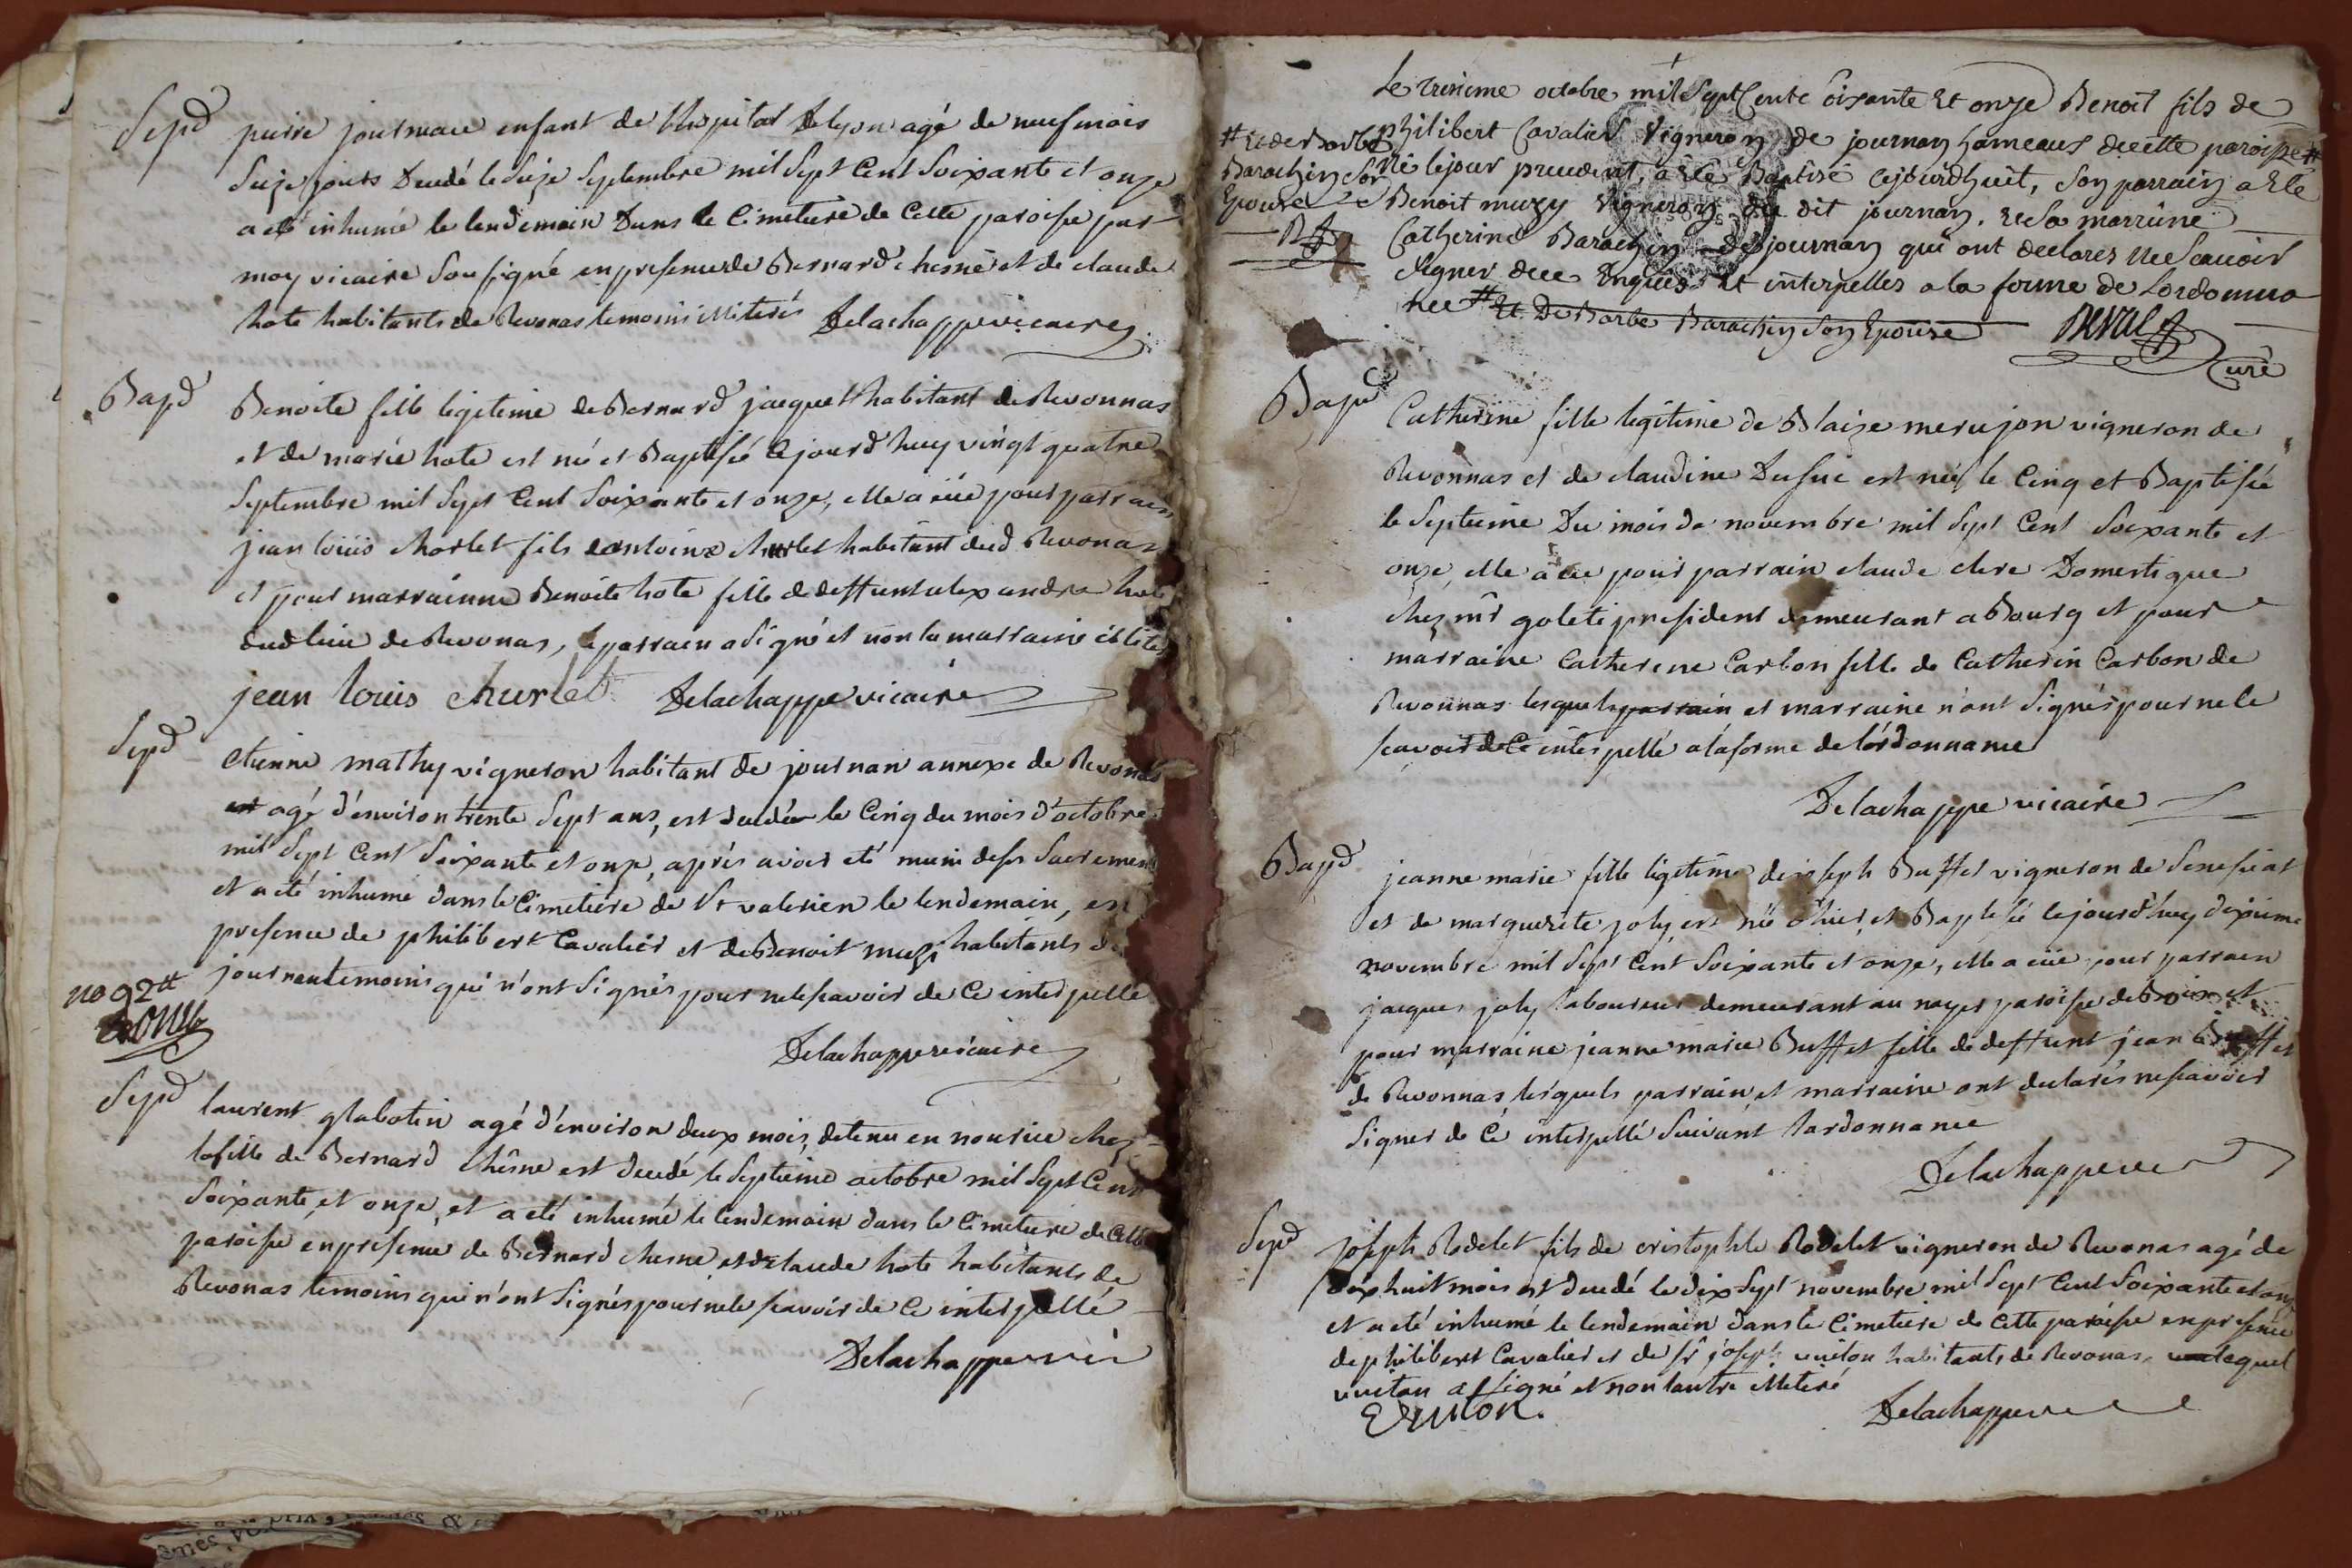 Sepd
pierre journeau enfant de l'hopital Delyon agé de neuf mois
Seize jours Decedé le Seize Septembre mil Sept Cent Soixante et onze
a eté inhumé le lendemain Dans le Cimetiere de Cette paroisse par
moy vicaire Sousigné en presence de Bernard chesne et de claude
hote habitants de Revonas temoins illiterés Delachappe vicaire
Bapd
Benoite fille legitime de Bernard jacquet habitant de Revonnas
et de marie hote est né et Baptisé Cejourd'huy vingt quatre
Septembre mil Sept Cent Soixante et onze, elle a eüe pour parrain
jean loüis charlet fils dantoine charlet habitant dud Revonas
et pour marrainne Benoite hote fille de deffunt alexandre hote
dud lieu de Revonas, le parrain a signé et non la marraine illité
jean louis churlet Delachappe vicaire
Sepd
etienne mathy vigneron habitant de journan annexe de Revonas
est agé d'environ trente Sept ans, est decdée le Cinq du mois d'octobre
mil Sept Cent Soixante et onze, après avoir eté muni de ses Sacrements
et a eté inhumé dans le Cimetiere de St valerien le lendemain, en
presence de philibert Cavalier et de Benoit muzi habitants de
journan temoins qui n'ont Signés pour ne le scavoir de Ce interpellé
no 92tt
Delachappe vicaire
Sepd
laurent glabotin agé d'environ deux mois, detenu en nourice chez
la fille de Bernard chesne est decedé le Septieme octobre mil Sept Cent
Soixante et onze, et a eté inhumé le lendemain dans le Cimetiere de Cette
paroisse en presence de Bernard chesne et de claude hote habitants de
Revonas temoins qui n'ont Signés pour ne le scavoir de Ce interpellé
Delachappe vic
Le treisieme octobre mil Sept Cents Soixante Et onze Benoit fils de
philibert Cavalier Vigneron de journan hameaux de cette paroisse #
# Et de Barbe
Barachin Son
Epouse
né le jour precedent, a Eté Baptisé cejourdhuit, Son parrain a Eté
Benoit muzy Vigneron du dit journan. Et Sa marraine
Catherine Barachin de journan qui ont declarez ne Scavoir
Signer de ce Enquis Et interpelles a la forme de Lordonna
nce # Et De Barbe Barachin Son Epouse
Curé
Bapd
Catherine fille legitime de Blaize merujon vigneron de
Revonnas et de claudine Dufuc est née le Cinq et Baptisée
le Septieme Du mois de novembre mil Sept Cent Soixante et
onze, elle a eüe pour parrain claude clere Domestique
chez mr goleti president demeurant a Bourg et pour
marraine Catherine Carbon fille de Catherin Carbon de
Revonnas lesquels parrain et marraine n'ont Signés pour ne le
scavoir de Ce interpellé a la forme de l'ordonnance
Delachappe vicaire
Bapd
jeanne marie fille legitime de joseph Buffet vigneron de Senessiat
et de marguerite joly est née d'hier, et Baptisé Cejourd'huy dixieme
novembre mil Sept Cent Soixante et onze, elle a eüe pour parrain
jacques joly laboureur demeurant au noyer paroisse de et
pour marraine jeanne marie Buffet fille de deffunt jean Buffet
de Revonnas lesquels parrain et marraine ont declarés ne scavoir
Signer de Ce interpellé Suivant l'ardonnance
Delachappe
Sepd
joseph Rodelet fils de cristophle Rodelet vigneron de Revonas agé de
dix huit mois est decedé le dix Sept novembre mil Sept Cent Soixante et onze
et a eté inhumé le lendemain dans le Cimetiere de Cette paroisse en presence
de philibert Cavalier et de Sr joseph vuiton habitants de Revonas, lequel
vuiton a signé et non lautre illiteré
Delachappe